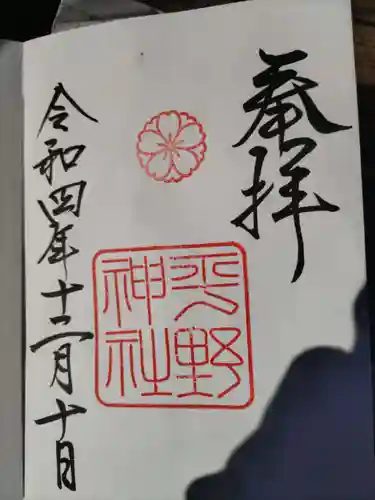 奉拝
平野
神社
令和四年十二月十日